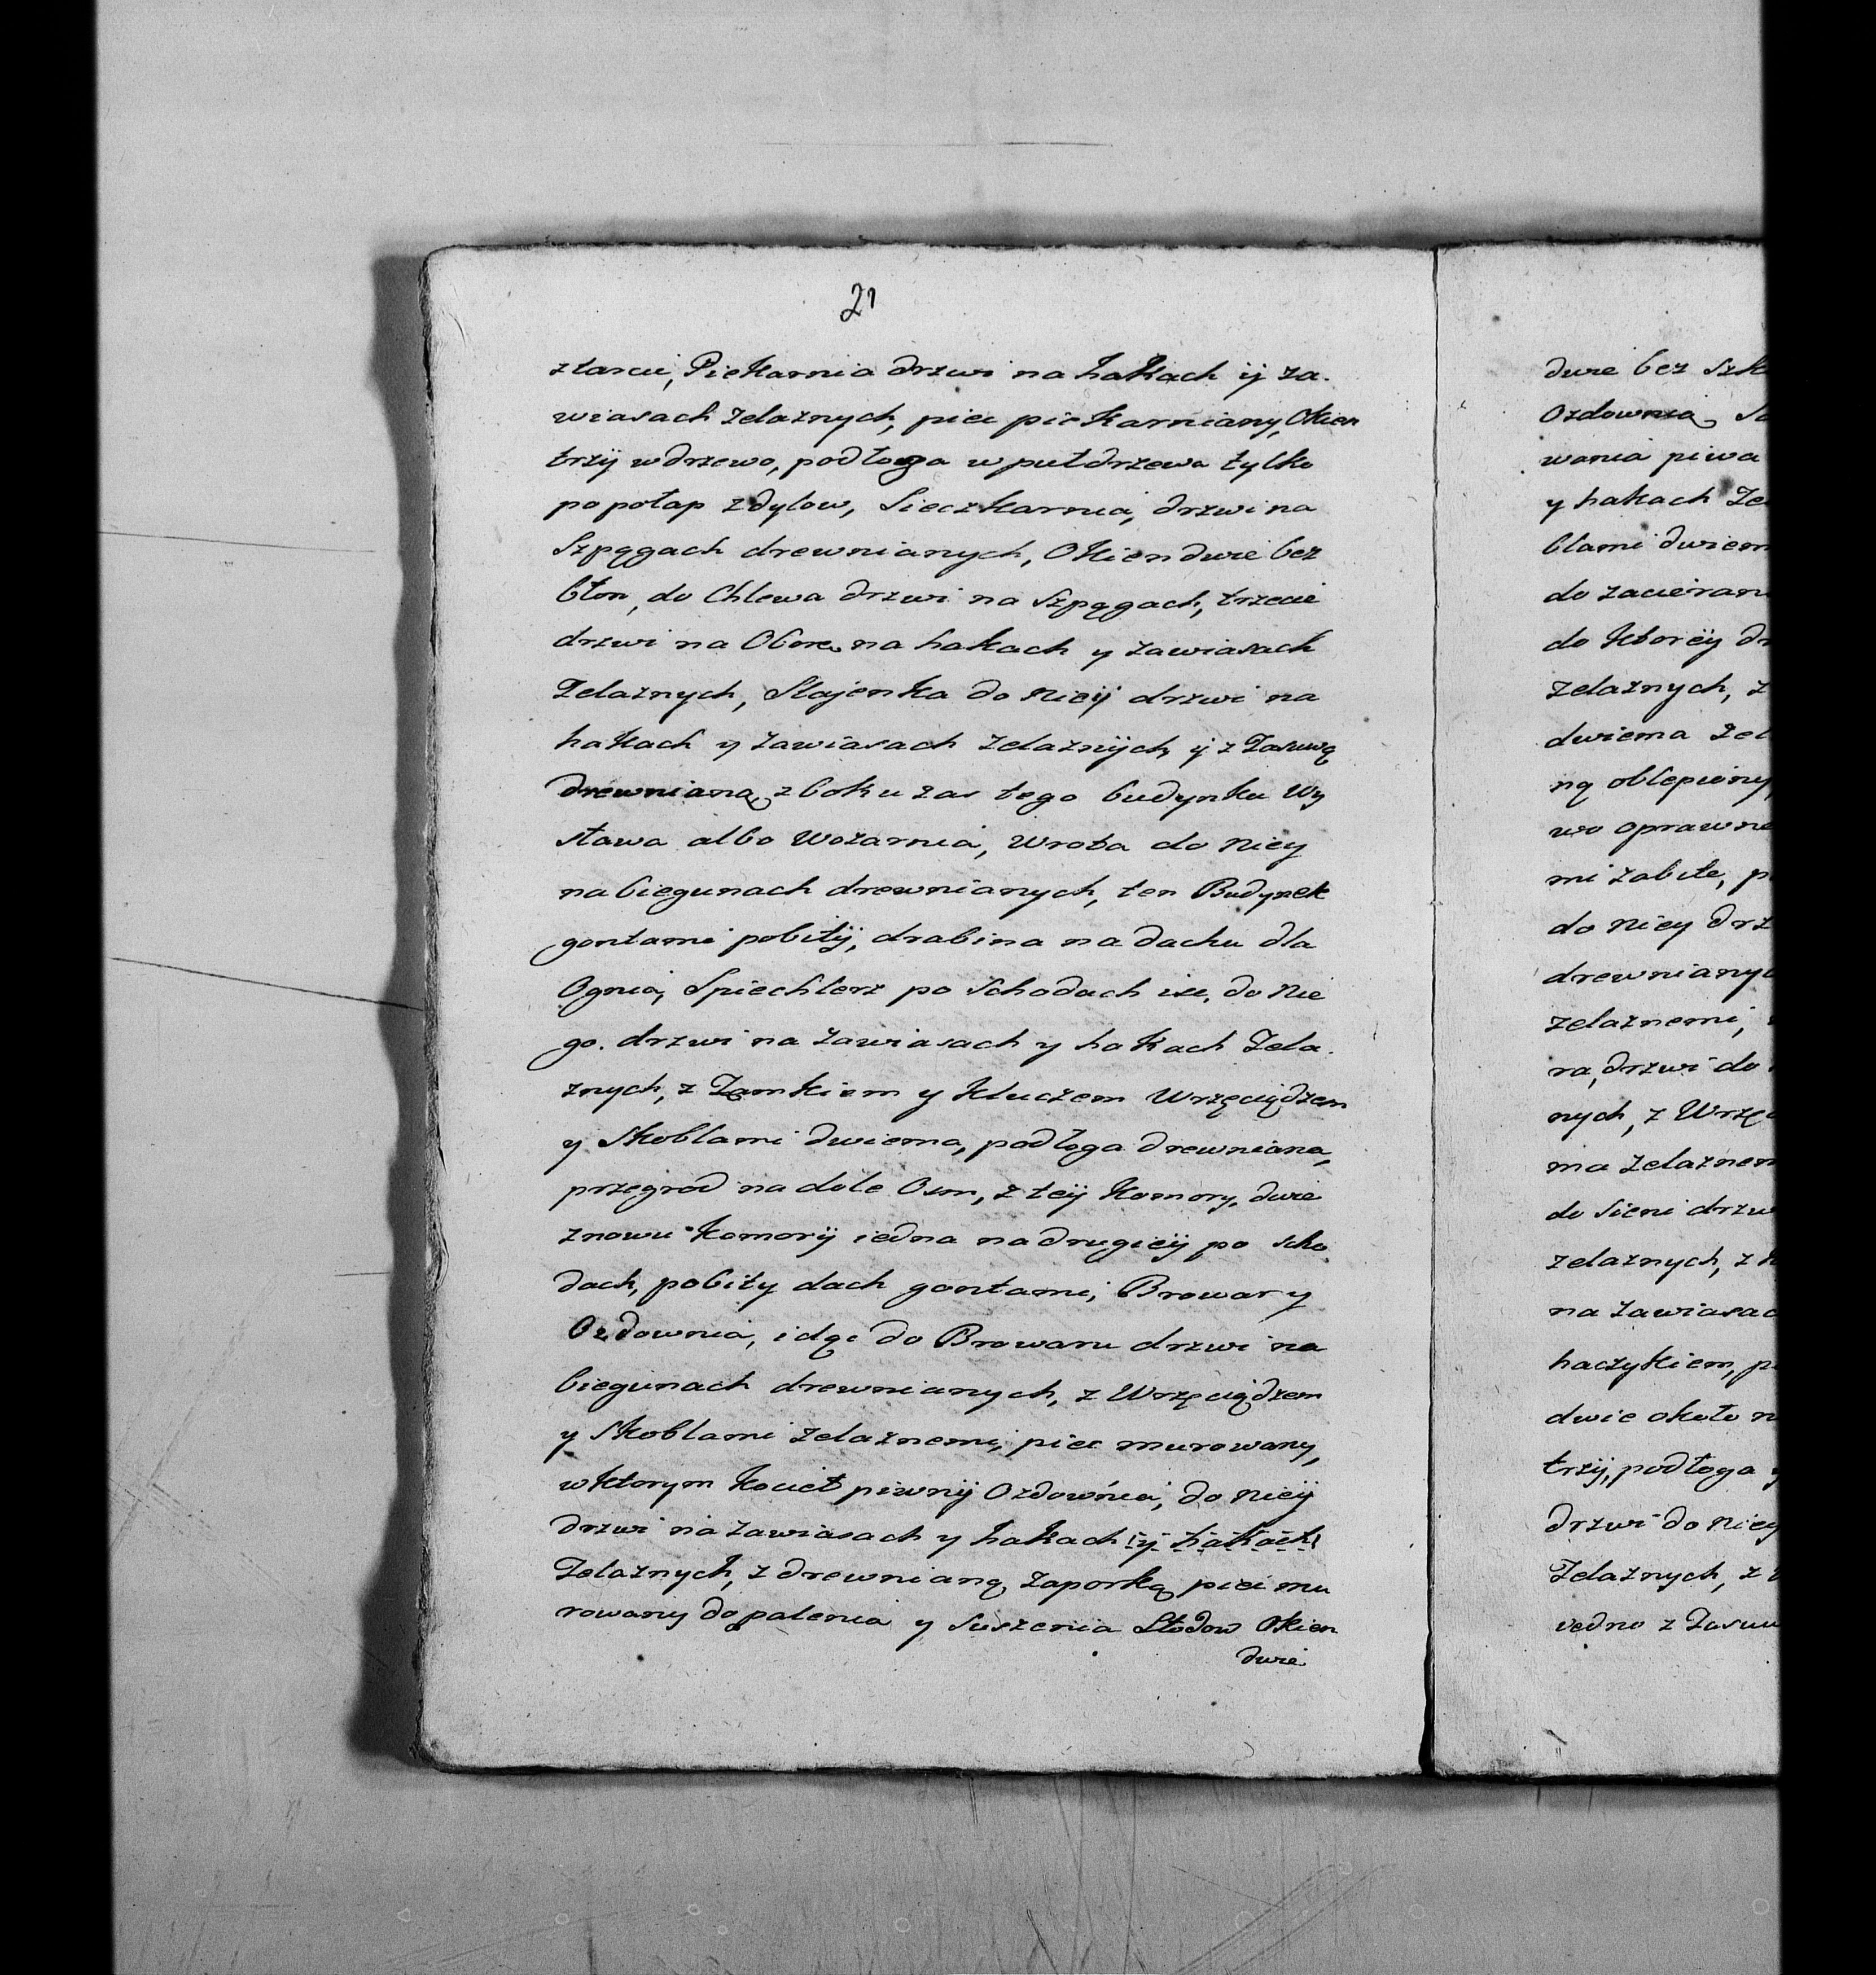 21
z tarcic, Piekarnia drzwi na hakach ÿ za.
wiasach zelaznych, piec piekarniany, Okien
trzÿ wdrzewo, podłoga w putdrzewa tylko
po połap z dylow, Sieczkarnia, drzwi na
Szpągach drewnianych, Okien dwie bez
błon, do Chlewa drzwi na Szpągach, trzecie
drzwi na Oborę na hakach y zawiasach
Zelaznych, Stajenka do Nieÿ drzwi na
hakach y zawiasach zelaznÿch ÿ z Zasuwą
drewnianą z boku zas tego budynku Wy
stawa albo Wozarnia, Wrota do Niey
na biegunach drewnianych, ten Budynek
gontami pobitÿ, drabina na dachu dla
Ognia, Spiechlerz po Schodach isc, do Nie
go. drzwi na zawiasach y hakach Zela.
znych, z Zamkiem y Kluczem Wrzęciądzem
y Skoblami dwiema, podłoga drewniana,
przegrod na dole Osm, z teÿ Komory, dwie
znowu Komorÿ iedna na drugieÿ po scho
dach, pobity dach gontami, Browar y
Ozdownia, idąc do Browaru drzwi na
biegunach drewnianych, z Wrzęciądzem
y Skoblami zelaznemi, piec murowany,
w ktorym Kocieł piwnÿ Ozdownia, do Nieÿ
drzwi na zawiasach y hakach (ÿ hakach)
Zelaznych, z drewnianą zaporką piec mu
rowany do palenia y suszenia Słodow Okien
dwie
dwie bez Szk
Ozdownią
wania piwa
y hakach Ze
blami dwiem
do zacieran
do Ktoreÿ dr
zelaznych, z
dwiema Zel
ną oblepiony,
wo oprawne
mi zabite, p
do Niey drz
drewnianyc
zelaznemi,
ra, drzwi do
nych, z Wrzęc
ma zelaznem
do Sieni drzw
zelaznych, z
na zawiasac
haczykiem, p
dwie około n
trzÿ, podłoga y
drzwi do Niey
Zelaznych, z
iedno z Zasuw